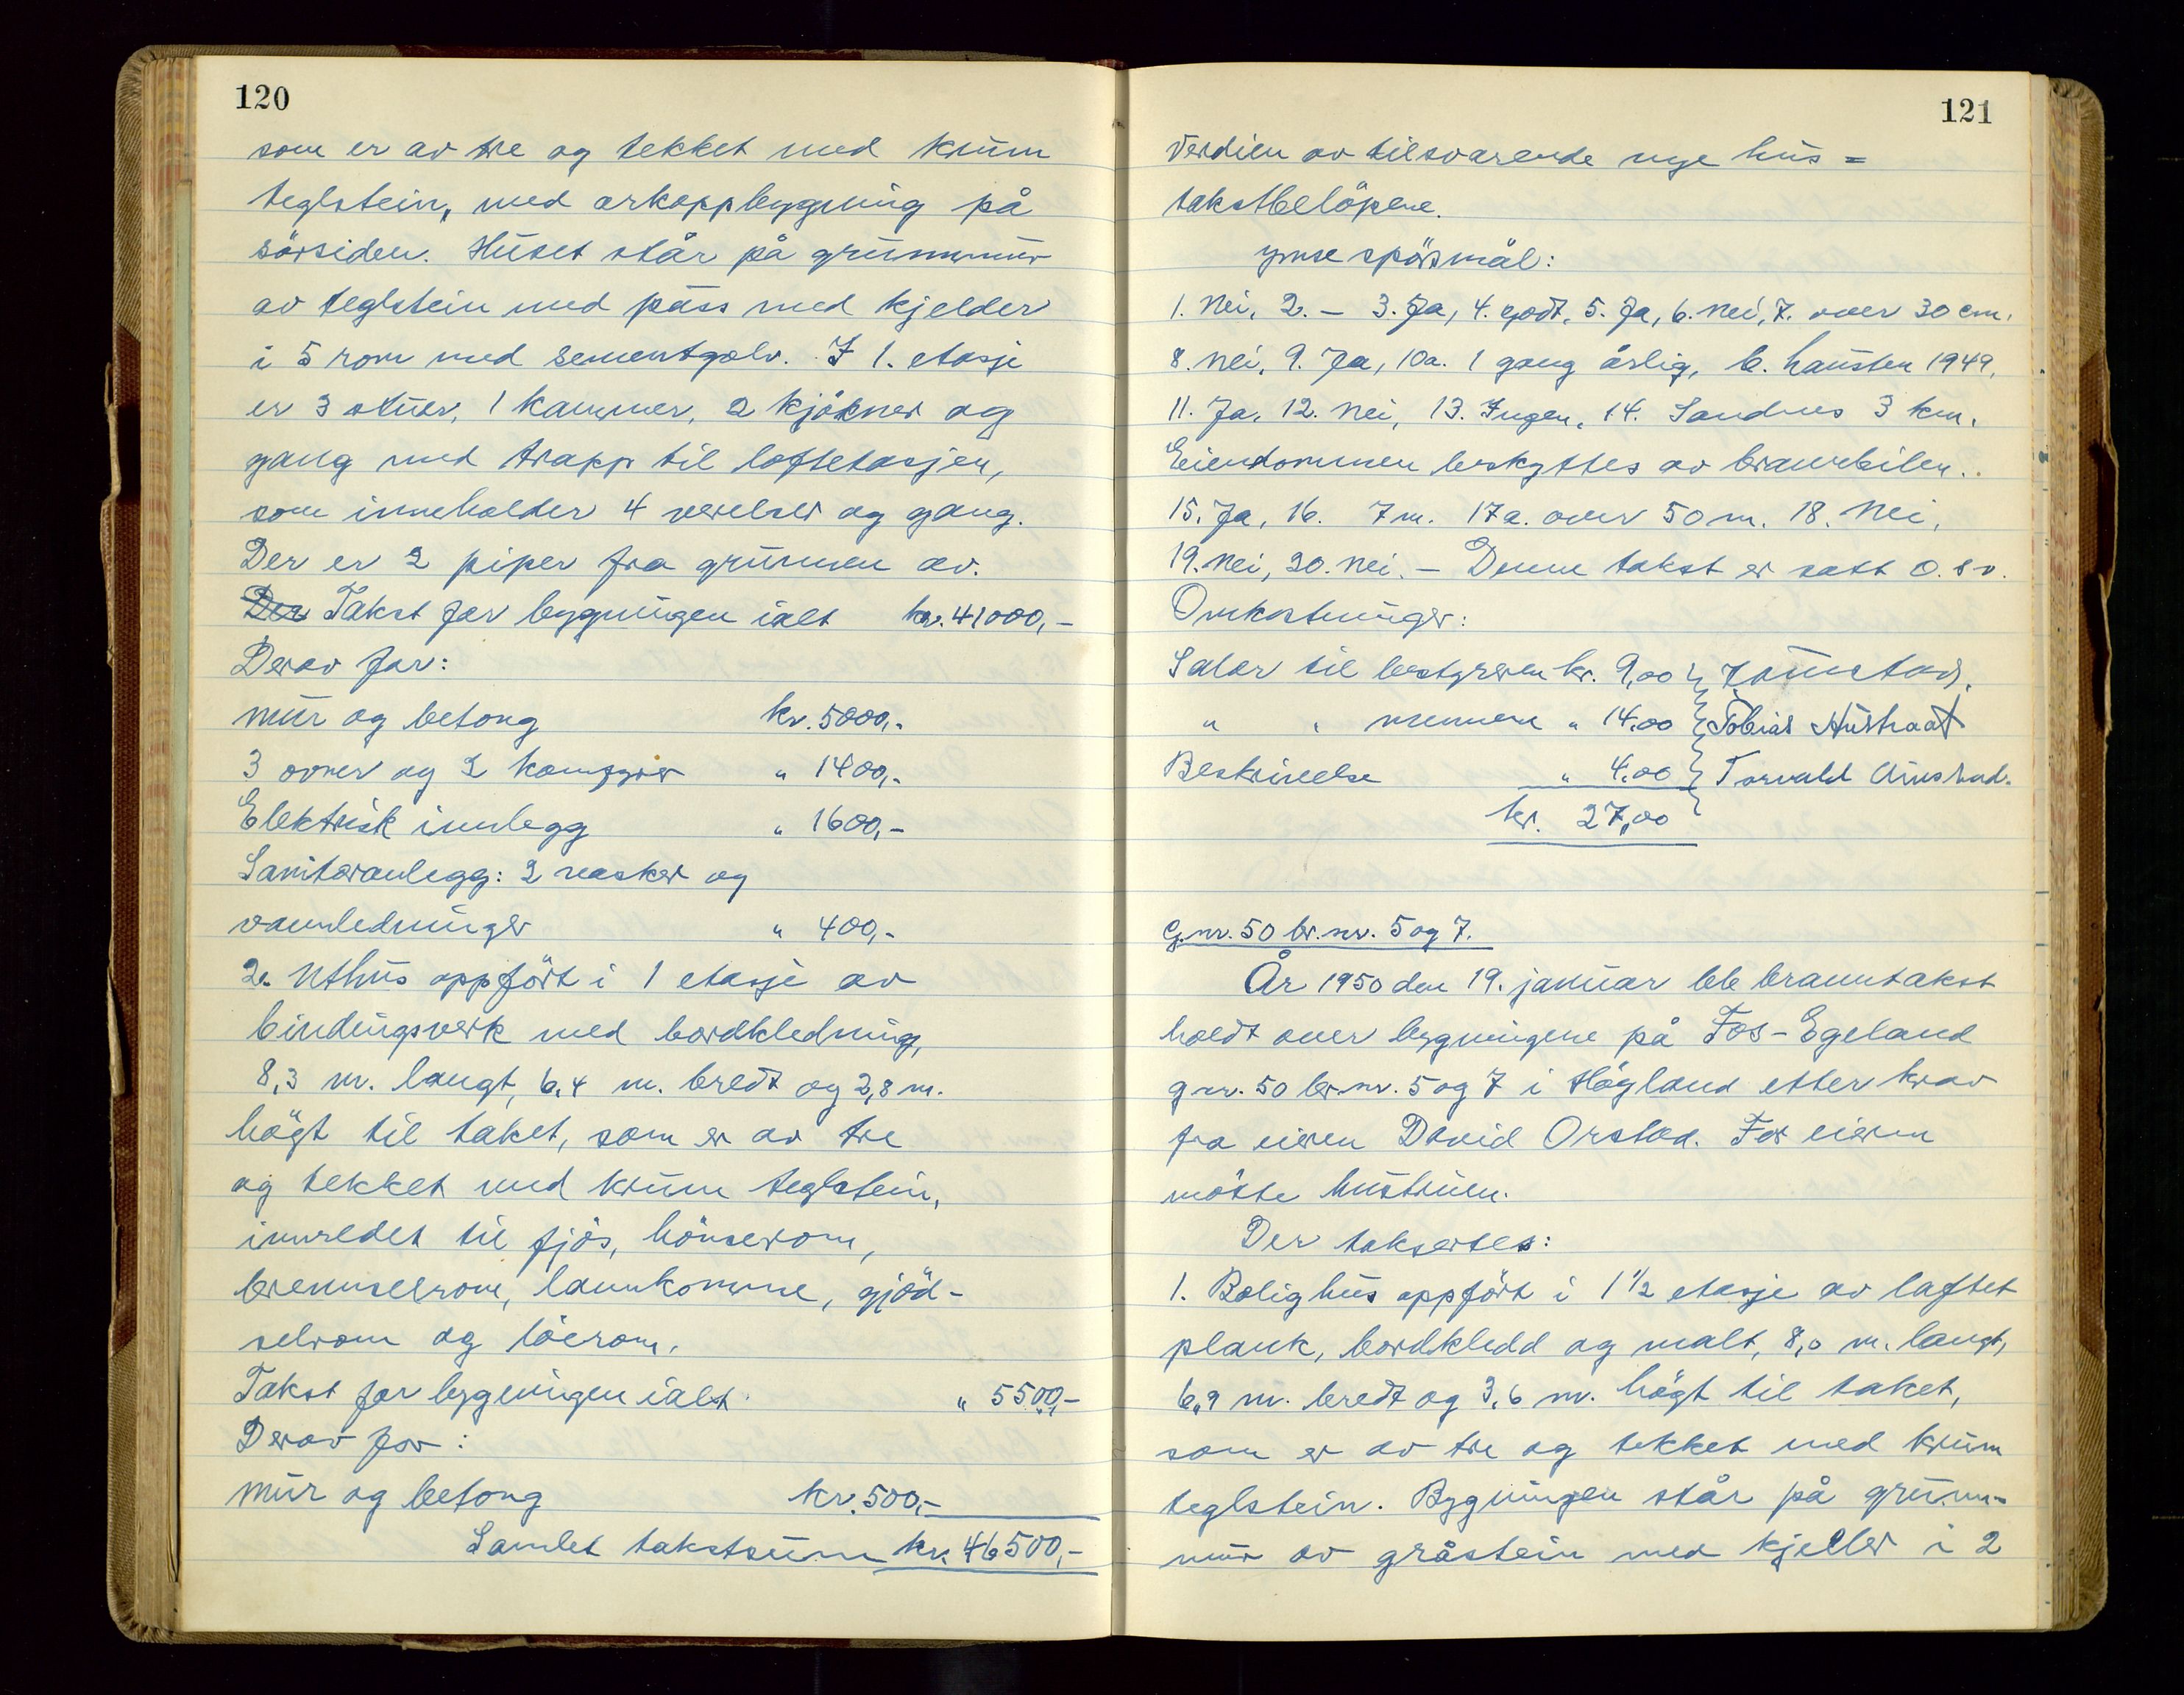 120
som er av tre og tekket med krum
teglstein, med arkoppbygning på
sörsiden. Huset står på grunnmur
av teglstein med puss med kjelder
i 5 rom med sementgolv. I 1. etasje
er 3 stuer, 1 kammer, 2 kjökner og
gang med trapp til loftetasjen,
som inneholder 4 verelser og gang.
Der er 2 piper fra grunnen av.
Der Takst for bygningen ialt kr. 41000,-
Derav for:
mur og betong kr. 5000,-
3 ovner og 2 komfyrer " 1400,-
Elektrisk innlegg " 1600,-
Sanitæranlegg: 2 vasker og
vannledninger " 400,-
2. Uthus oppfört i 1 etasje av
bindingsverk med bordkledning,
8,3 m. langt, 6,4 m. bredt og 2,8 m.
högt til taket, som er av tre
og tekket med krum teglstein,
innredet til fjös, hönserom,
brenselrom, lannkomme, gjöd-
selrom og löerom.
Takst for bygningen ialt " 5500,-
Derav for:
mur og betong kr. 500,-
Samlet takstsum kr. 46500,-
121
Verdien av tilsvarende nye hus =
takstbelöpene.
ymse spörsmål:
1. Nei, 2. – 3. Ja, 4. godt, 5. Ja, 6. nei, 7. over 30 cm.
8. nei, 9. Ja, 10a. 1 gang årlig, b. hausten 1949,
11. Ja, 12. nei, 13. Ingen, 14. Sandnes 3 km.
Eiendommen beskyttes av brannbilen.
15. Ja, 16. 7 m. 17a. over 50 m. 18. Nei,
19. Nei, 20. Nei. – Denne takst er satt o.s.v.
Omkostninger:
Salær til bestyreren kr. 9,00
" " mennene " 14,00 Tobias Austraat
Beskrivelse " 4,00 Torvald Aunstad.
kr. 27,00
G.nr. 50 br.nr. 5 og 7.
År 1950 den 19. januar ble branntakst
holdt over bygningene på Fos-Egeland
g nr. 50 br.nr. 5 og 7 i Högland etter krav
fra eieren David Orstad. For eieren
mötte hustruen.
Der taksertes:
1. Bolighus oppfört i 1 1/2 etasje av laftet
plank, bordkledd og malt, 8,0 m. langt,
6,9 m. bredt og 3,6 m. högt til taket,
som er av tre og tekket med krum
teglstein. Bygningen står på grunn-
mur av gråstein med kjeller i 2